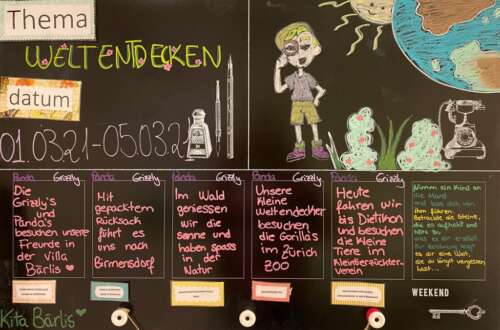 Thema
WELTENTDECKEN
datum
01.03.21-05.03.21
Panda Grizzly
Die
Grizzly's
und
Panda's
besuchen unsere
Freunde in
der Villa
Bärlis
Panda Grizzly
Mit
gepacktem
Rucksack
führt es
uns nach
Birmensdorf
Panda Grizzly
Im Wald
geniessen
wir die
Sonne und
haben spass
in der
Natur
Panda Grizzly
Unsere
Kleine
Weltendecker
besuchen
die Gorilla's
im Zürich
Zoo
Panda Grizzly
Heute
fahren wir
bis Dietikon
und besuchen
die Kleine
Tiere im
Kleintierzüchter-
verein
Nimm ein Kind an
die Hand
und lass dich von
ihm führen.
Betrachte die Steine,
die es aufhebt und
höre zu
was es dir erzählt.
zeigt
es dir eine Welt,
die du längst vergessen
hast...
WEEKEND
Kita Bärlis